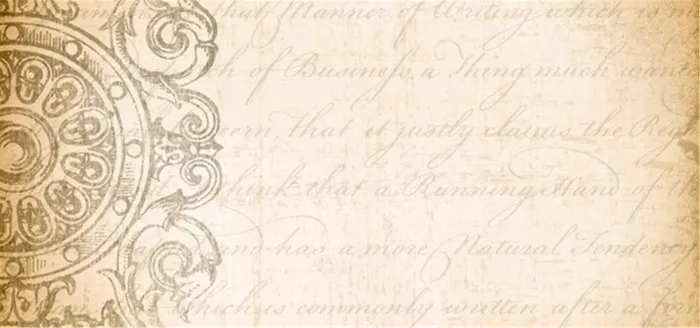 that Manner of Writing which is m
ch of Business, a Thing much want
cern, that it justly claims the Reg
think that a Running Hand of th
and has a more Natural Tenden
which is commonly written after a for